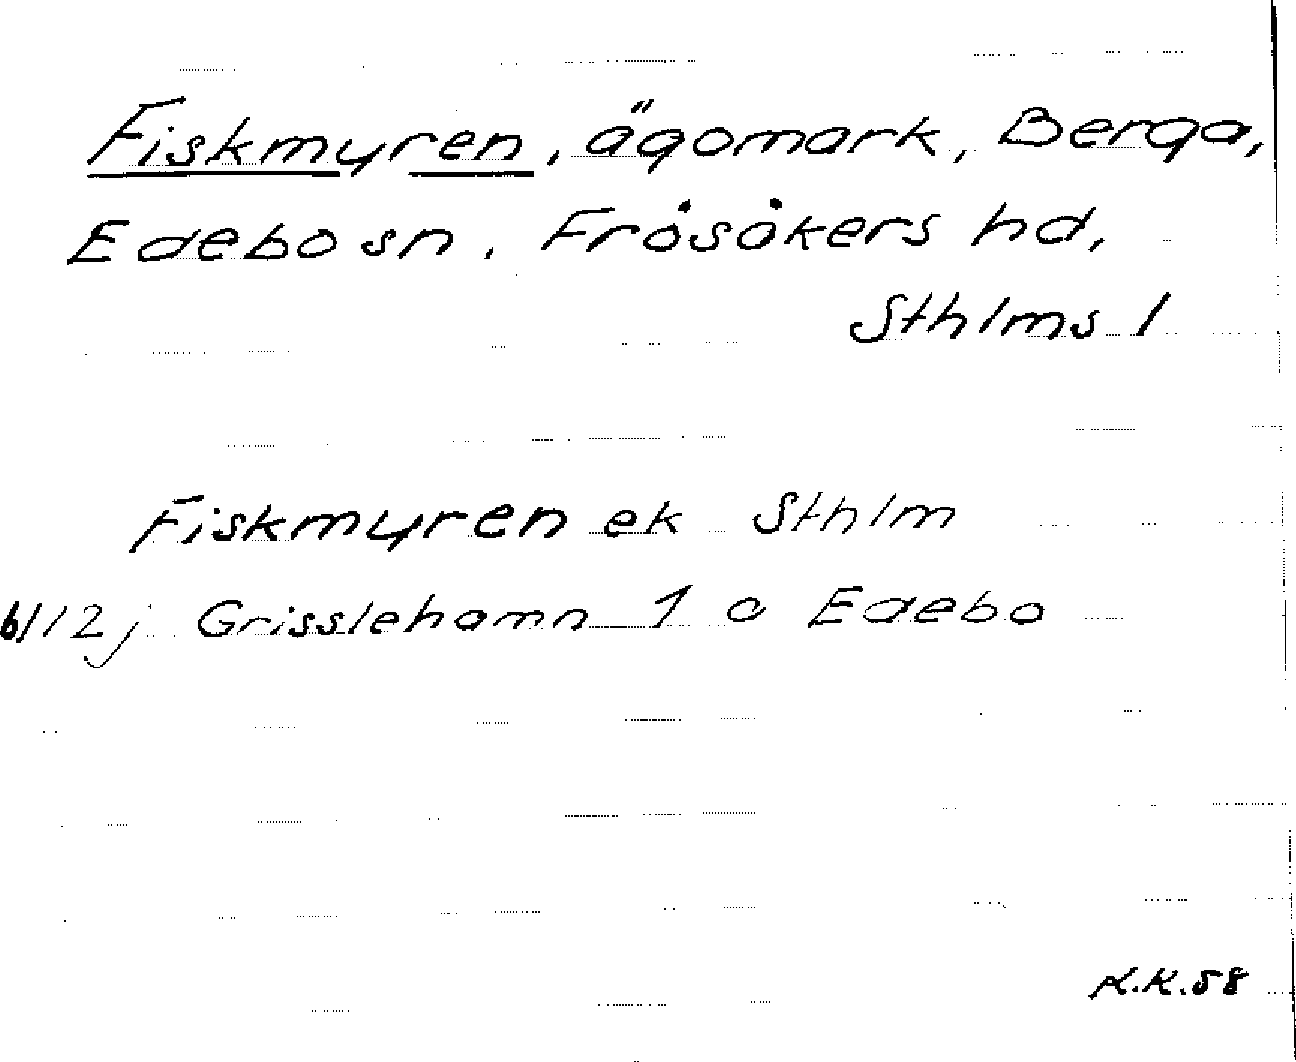 Fiskmyren, ägomark, Berga,
Edebo sn, Frösåkers hd,
Sthlms l
Fiskmyren ek Sthlm
6/12j Grisslehamn 1 c Edebo
R.K.58